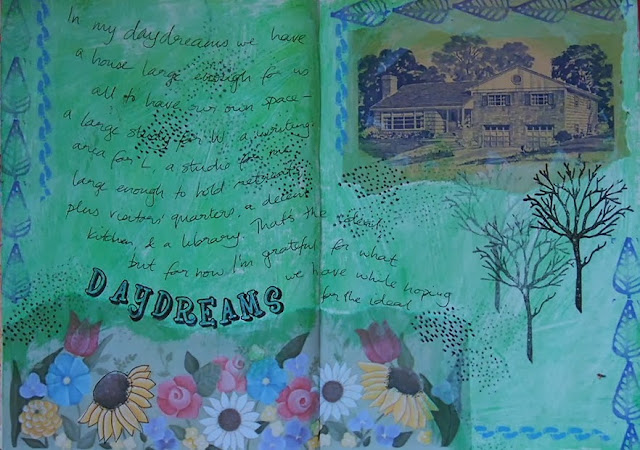 In my daydreams we have
a house large enough for us
all to have our own space -
a large study for W, a writing
area for L, a studio for me
large enough to hold retreats,
plus visitors' quarters, a decent
kitchen & a library. That's the
but for now I'm grateful for what
we have while hoping
for the ideal
DAYDREAMS